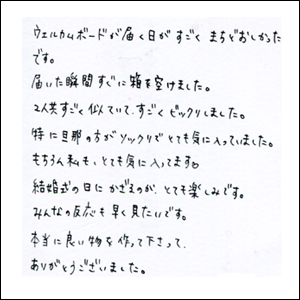 ウェルカムボードが届く日がすごくまちどおしかった
です。
届いた瞬間すぐに箱を空けました。
2人共すごく似ていて、すごくビックリしました。
特に旦那の方がソックリでとても気に入っていました。
もちろん私も、とても気に入ってます♡
結婚式の日にかざるのが、とても楽しみです。
みんなの反応も早く見たいです。
本当に良い物を作って下さって、
ありがとうございました。